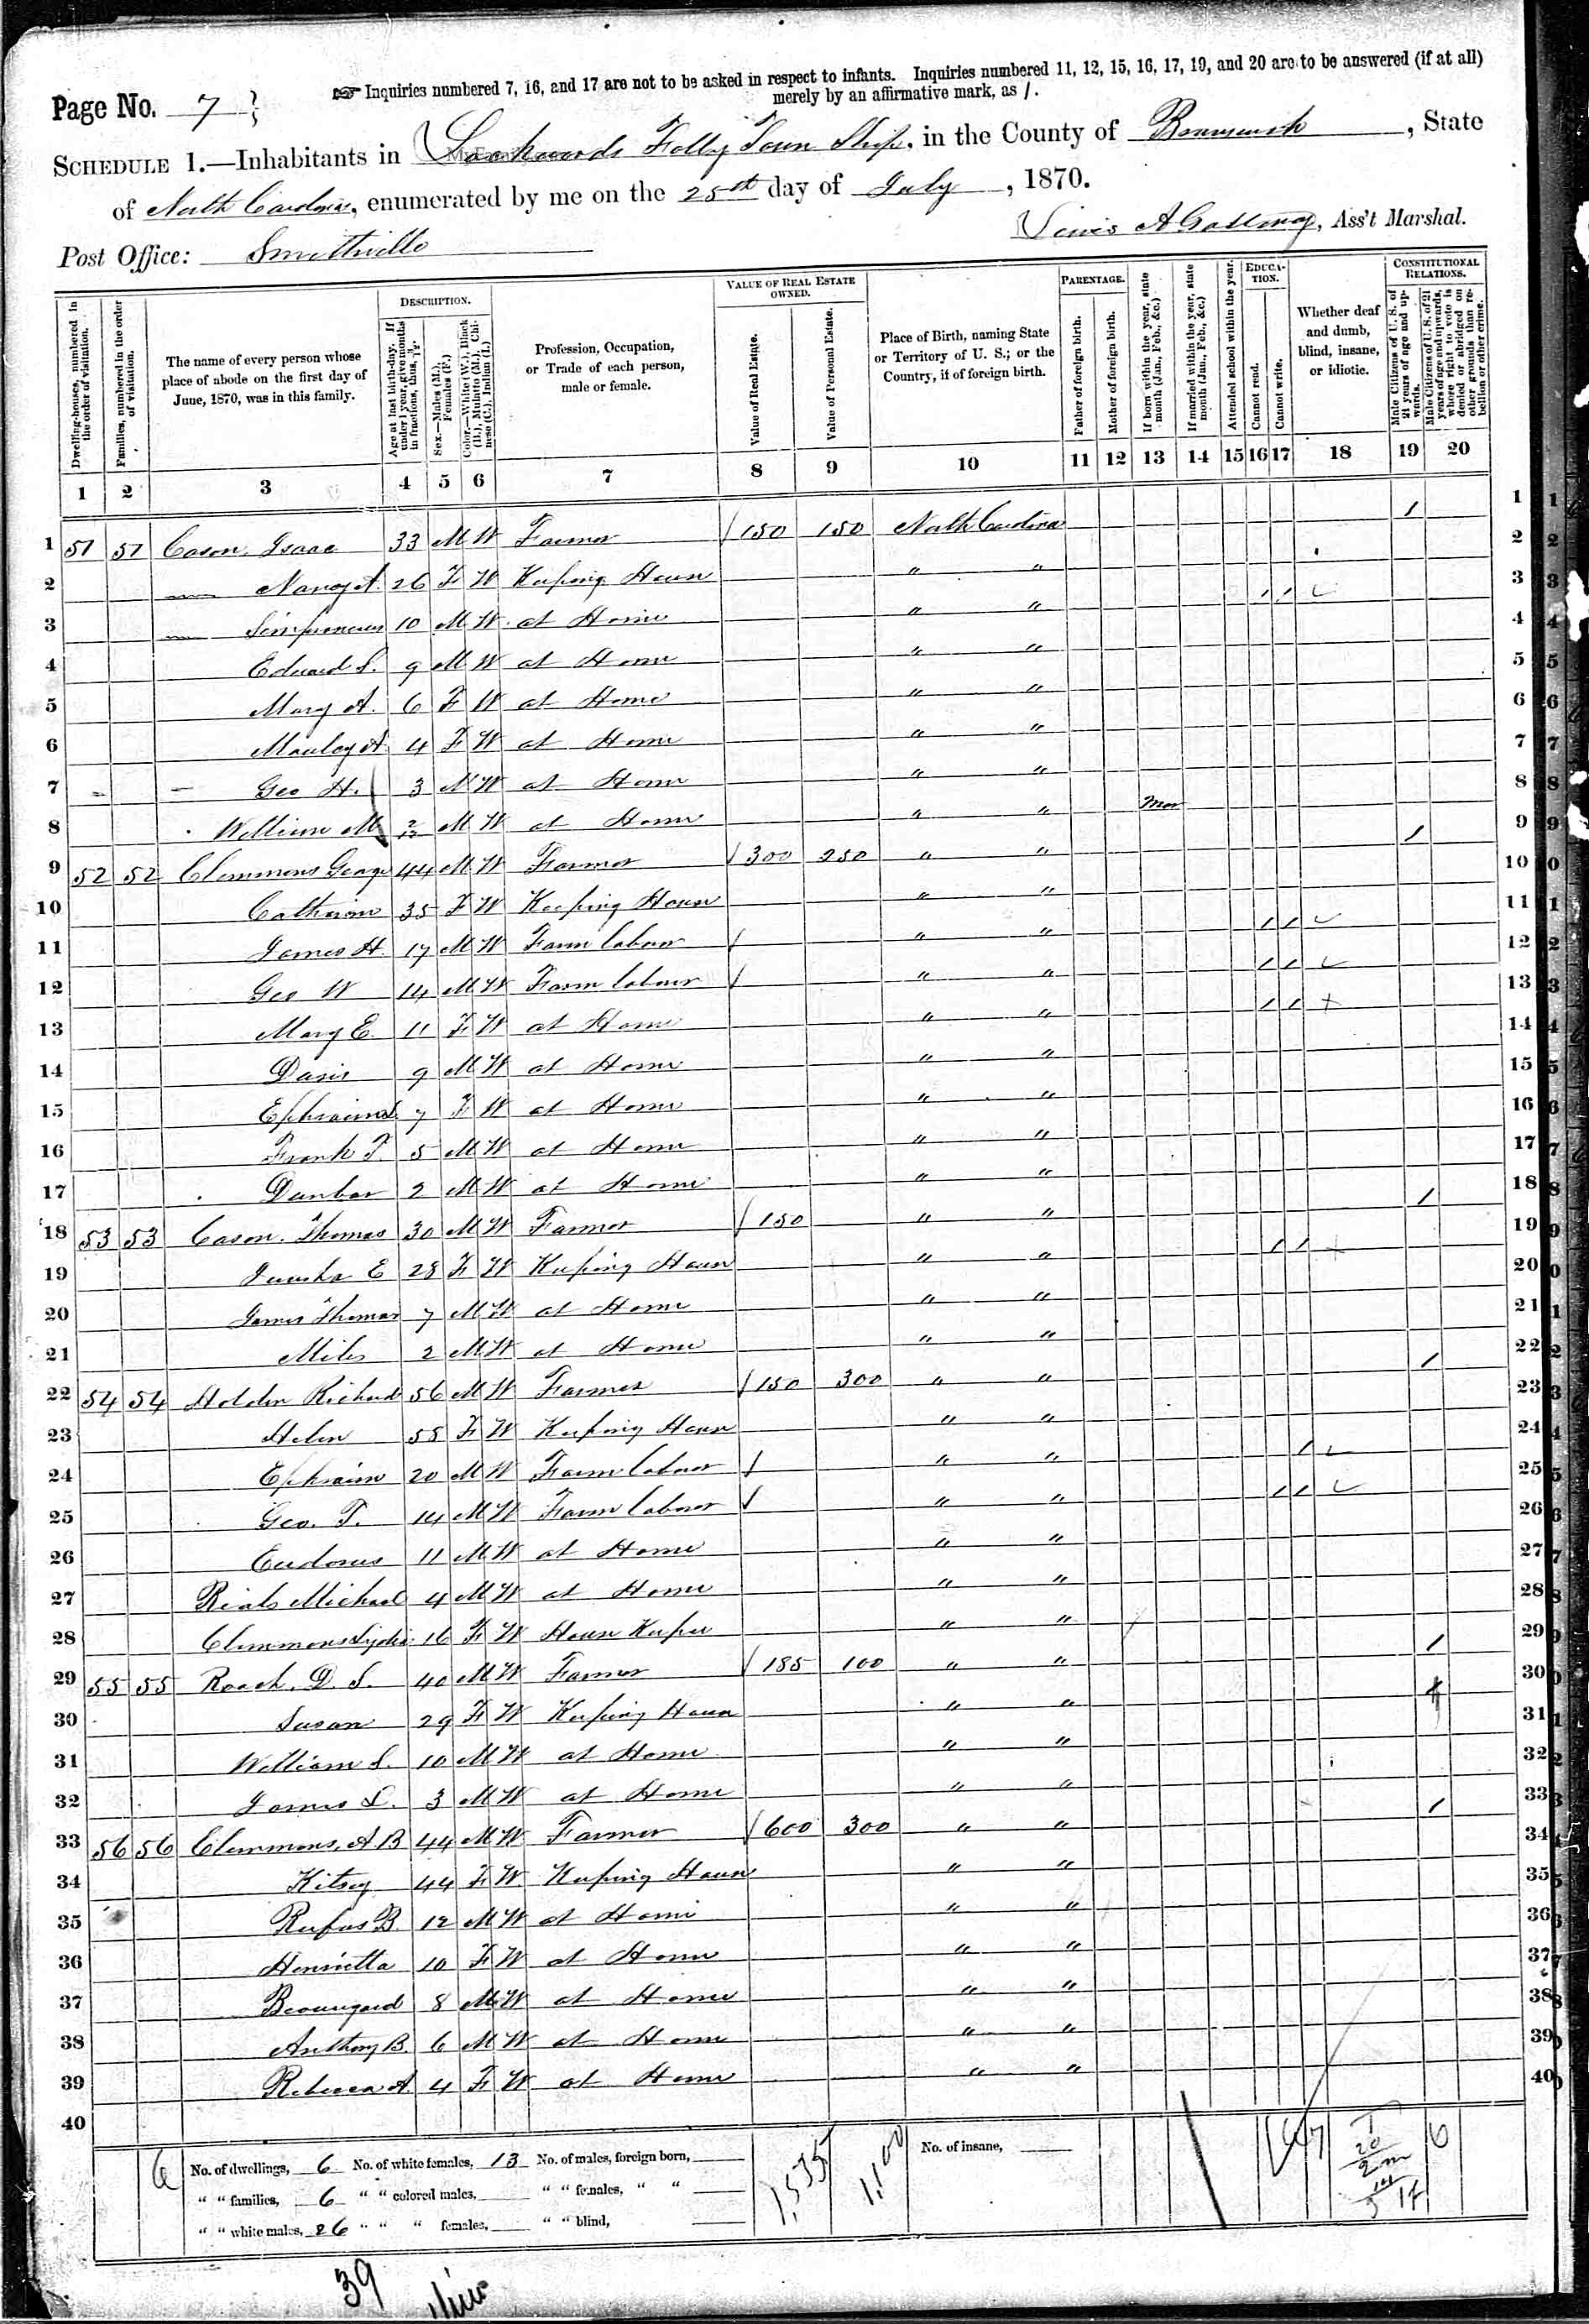 Page No. 7
☞ Inquiries numbered 7, 16, and 17 are not to be asked in respect to infants. Inquiries numbered 11, 12, 15, 16, 17, 19, and 20 are to be answered (if at all)
merely by an affirmative mark, as /.
SCHEDULE 1.—Inhabitants in Lockwoods Folly Town Ship, in the County of Brunswick, State
of North Carolina, enumerated by me on the 25th day of July, 1870.
Post Office: Smithville
A Galloway, Ass't Marshal.
Dwelling-houses, numbered in the order of visitation.
Families, numbered in the order of visitation.
The name of every person whose place of abode on the first day of June, 1870, was in this family.
DESCRIPTION.
Age at last birth-day. If under 1 year, give months in fractions, thus, 3/12
Sex.—Males (M.), Females (F.)
Color.—White (W.), Black (B.), Mulatto (M.), Chinese (C.), Indian (I.)
Profession, Occupation, or Trade of each person, male or female.
VALUE OF REAL ESTATE OWNED.
Value of Real Estate.
Value of Personal Estate.
Place of Birth, naming State or Territory of U. S.; or the Country, if of foreign birth.
PARENTAGE.
Father of foreign birth.
Mother of foreign birth.
If born within the year, state month (Jan., Feb., &c.)
If married within the year, state month (Jan., Feb., &c.)
Attended school within the year.
EDUCATION.
Cannot read.
Cannot write.
Whether deaf and dumb, blind, insane, or idiotic.
CONSTITUTIONAL RELATIONS.
Male Citizens of U. S. of 21 years of age and upwards.
Male Citizens of U. S. of 21 years of age and upwards, where right to vote is denied or abridged on other grounds than rebellion or other crime.
1 2 3 4 5 6 7 8 9 10 11 12 13 14 15 16 17 18 19 20
1 51 51 Cason, Isaac 33 M W Farmer 150 150 North Carolina / 1
2 Nancy A. 26 F W Keeping House " " 2
3 10 M W at Home " " / / 3
4 Edward S. 9 M W at Home " " 4
5 Mary A. 6 F W at Home " " 5
6 4 F W at Home " " 6
7 Geo H. 3 M W at Home " " 7
8 William M 2/12 M W at Home " " 8
9 52 52 Clemmons George 44 M W Farmer 300 250 " " / 9
10 Catherine 35 F W Keeping House " " 10
11 James H. 17 M W Farm labour " " / / 11
12 Geo W 14 M W Farm labour " " / / 12
13 Mary E. 11 F W at Home " " / / 13
14 Davis 9 M W at Home " " 14
15 7 F W at Home " " 15
16 Frank T. 5 M W at Home " " 16
17 Dunbar 2 M W at Home " " 17
18 53 53 Cason, Thomas 30 M W Farmer 150 " " / 18
19 E 28 F W Keeping House " " / / 19
20 James Thomas 7 M W at Home " " 20
21 Miles 2 M W at Home " " 21
22 54 54 Holden Richard 56 M W Farmer 150 300 " " / 22
23 Helen 58 F W Keeping House " " 23
24 Ephraim 20 M W Farm labour " " / 24
25 Geo. T. 14 M W Farm labour " " / / 25
26 11 M W at Home " " 26
27 Michael 4 M W at Home " " 27
28 Clemmons Lydia 16 F W House Keeper " " 28
29 55 55 Roach, D. S. 40 M W Farmer 185 100 " " / 29
30 Susan 29 F W Keeping House " " 30
31 William S. 10 M W at Home " " 31
32 James L. 3 M W at Home " " 32
33 56 56 Clemmons, A B 44 M W Farmer 600 300 " " / 33
34 Kitsey 44 F W Keeping House " " 34
35 Rufus B. 12 M W at Home " " 35
36 Henrietta 10 F W at Home " " 36
37 Beauregard 8 M W at Home " " 37
38 Anthony B. 6 M W at Home " " 38
39 Rebecca A 4 F W at Home " " 39
40 40
6 No. of dwellings, 6 No. of white females, 13 No. of males, foreign born, 1,535 1,100 No. of insane, 6
" " families, 6 " " colored males, " " females, " "
" " white males, 26 " " " females, " " blind,
39